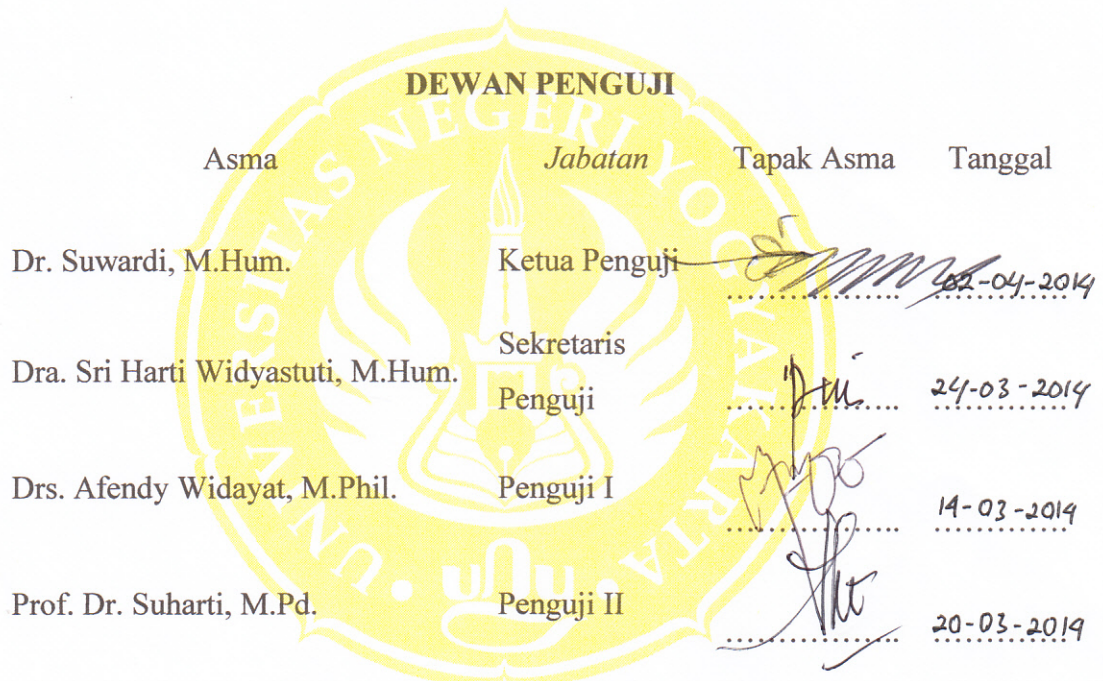 DEWAN PENGUJI
Asma Jabatan Tapak Asma Tanggal
Dr. Suwardi, M.Hum. Ketua Penguji .................. 02-04-2014
Dra. Sri Harti Widyastuti, M.Hum. Sekretaris
Penguji .................. 24-03-2014
Drs. Afendy Widayat, M.Phil. Penguji I .................. 14-03-2014
Prof. Dr. Suharti, M.Pd. Penguji II .................. 20-03-2014
UNIVERSITAS NEGERI YOGYAKARTA